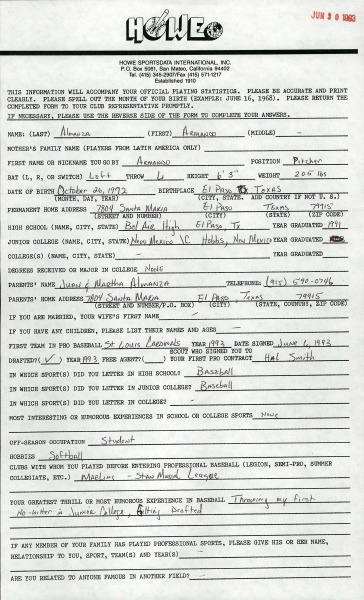 JUN 30 1993
HOWE
HOWE SPORTSDATA INTERNATIONAL, INC.
P.O. Box 5061, San Mateo, California 94402
Tel. (415) 345-2907/Fax (415) 571-1217
Established 1910
THIS INFORMATION WILL ACCOMPANY YOUR OFFICIAL PLAYING STATISTICS. PLEASE BE ACCURATE AND PRINT
CLEARLY. PLEASE SPELL OUT THE MONTH OF YOUR BIRTH (EXAMPLE: JUNE 16, 1968). PLEASE RETURN THE
COMPLETED FORM TO YOUR CLUB REPRESENTATIVE PROMPTLY.
IF NECESSARY, PLEASE USE THE REVERSE SIDE OF THE FORM TO COMPLETE YOUR ANSWERS.
NAME: (LAST) Almanza (FIRST) Armando (MIDDLE) -
MOTHER'S FAMILY NAME (PLAYERS FROM LATIN AMERICA ONLY)
FIRST NAME OR NICKNAME YOU GO BY Armando POSITION Pitcher
BAT (L, R, OR SWITCH) Left THROW L HEIGHT 6' 3" WEIGHT 205 lbs
DATE OF BIRTH October 26, 1972 BIRTHPLACE El Paso Texas
(MONTH, DAY, YEAR) (CITY, STATE. ADD COUNTRY IF NOT U. S.)
PERMANENT HOME ADDRESS 7804 Santa Maria El Paso Texas 79915
(STREET AND NUMBER) (CITY) (STATE) (ZIP CODE)
HIGH SCHOOL (NAME, CITY, STATE) Bel Air High El Paso, Tx YEAR GRADUATED 1991
JUNIOR COLLEGE (NAME, CITY, STATE) New Mexico JC Hobbs, New Mexico YEAR GRADUATED
COLLEGE(S) (NAME, CITY, STATE) - YEAR GRADUATED -
DEGREES RECEIVED OR MAJOR IN COLLEGE None
PARENTS' NAME Juan & Martha Almanza TELEPHONE: (915) 590-0746
PARENTS' HOME ADDRESS 7804 Santa Maria El Paso, Texas 79915
(STREET AND NUMBER/P.O. BOX) (CITY) (STATE, COUNTRY, ZIP CODE)
IF YOU ARE MARRIED, YOUR WIFE'S FIRST NAME -
IF YOU HAVE ANY CHILDREN, PLEASE LIST THEIR NAMES AND AGES -
FIRST TEAM IN PRO BASEBALL St. Louis Cardinals YEAR 1993 DATE SIGNED June 1, 1993
SCOUT WHO SIGNED YOU TO
DRAFTED? (✓) YEAR 1993 FREE AGENT? ( ) YOUR FIRST PRO CONTRACT Hal Smith
IN WHICH SPORT(S) DID YOU LETTER IN HIGH SCHOOL? Baseball
IN WHICH SPORT(S) DID YOU LETTER IN JUNIOR COLLEGE? Baseball
IN WHICH SPORT(S) DID YOU LETTER IN COLLEGE? -
MOST INTERESTING OR HUMOROUS EXPERIENCES IN SCHOOL OR COLLEGE SPORTS None
OFF-SEASON OCCUPATION Student
HOBBIES Softball
CLUBS WITH WHOM YOU PLAYED BEFORE ENTERING PROFESSIONAL BASEBALL (LEGION, SEMI-PRO, SUMMER
COLLEGIATE, ETC.) Marlins - Stan Musial League
YOUR GREATEST THRILL OR MOST HUMOROUS EXPERIENCE IN BASEBALL Throwing my first
No-hitter in Junior College, Getting Drafted
IF ANY MEMBER OF YOUR FAMILY HAS PLAYED PROFESSIONAL SPORTS, PLEASE GIVE HIS OR HER NAME,
RELATIONSHIP TO YOU, SPORT, TEAM(S) AND YEAR(S) -
ARE YOU RELATED TO ANYONE FAMOUS IN ANOTHER FIELD? -